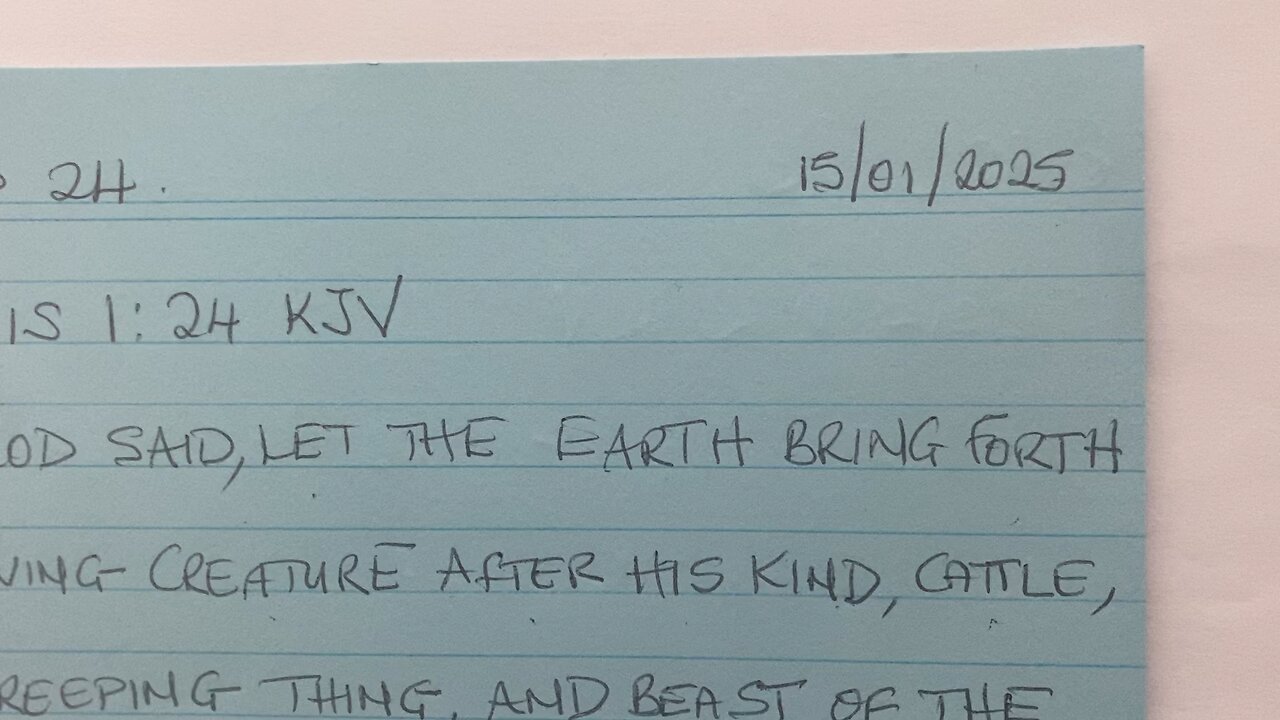 24. 15/01/2025
IS 1:24 KJV
OD SAID, LET THE EARTH BRING FORTH
VING CREATURE AFTER HIS KIND, CATTLE,
REEPING THING, AND BEAST OF THE